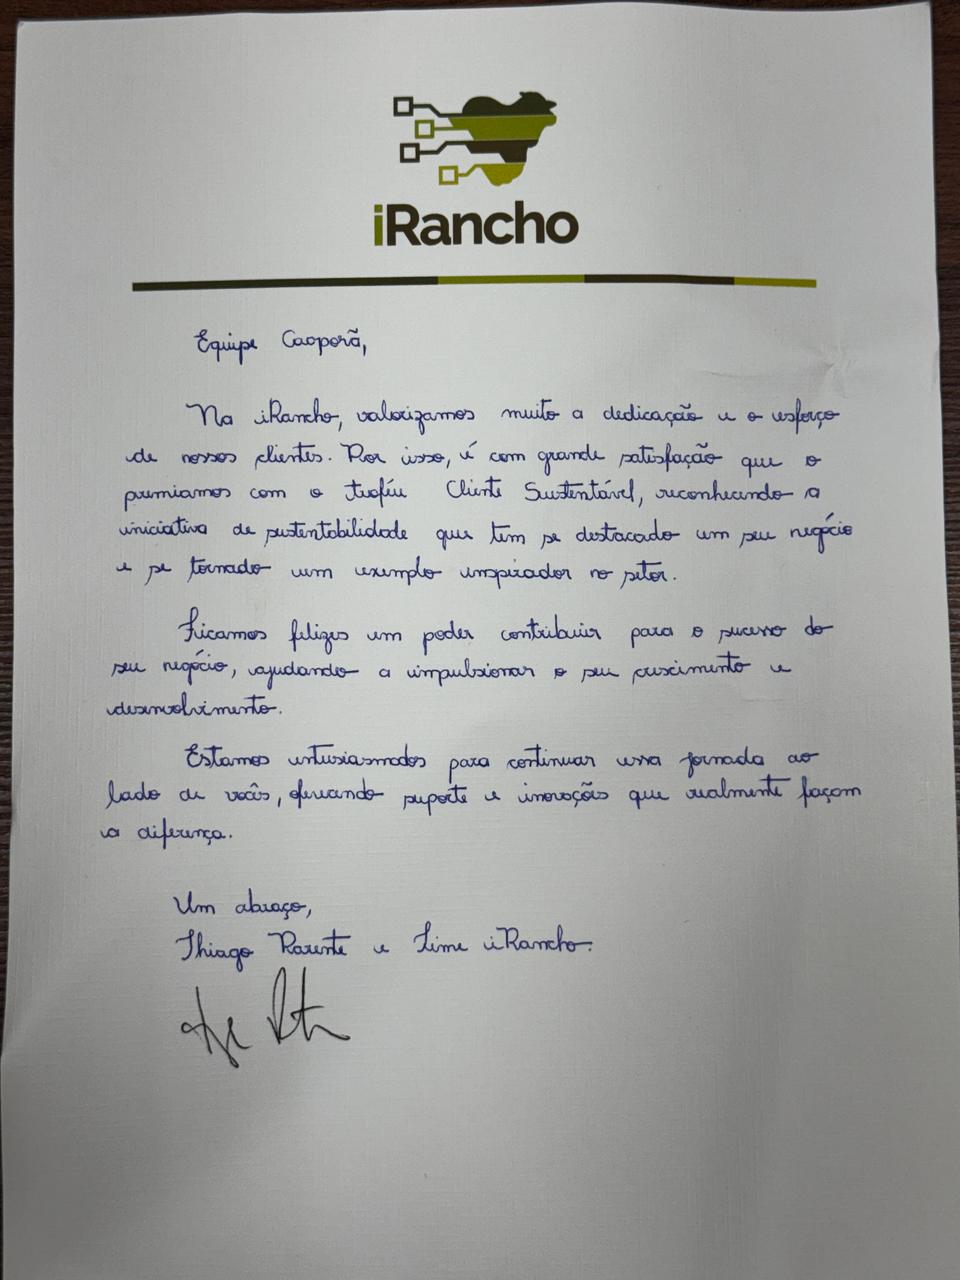 iRancho
Equipe Caaporã,
Na iRancho, valorizamos muito a dedicação e o esforço
de nossos clientes. Por isso, é com grande satisfação que o
premiamos com o troféu Cliente Sustentável, reconhecendo a
iniciativa de sustentabilidade que tem se destacado em seu negócio
e se tornado um exemplo inspirador no setor.
Ficamos felizes em poder contribuir para o sucesso do
seu negócio, ajudando a impulsionar o seu crescimento e
desenvolvimento.
Estamos entusiasmados para continuar essa jornada ao
lado de vocês, oferecendo suporte e inovações que realmente façam
a diferença.
Um abraço,
Thiago Parente e Time iRancho.